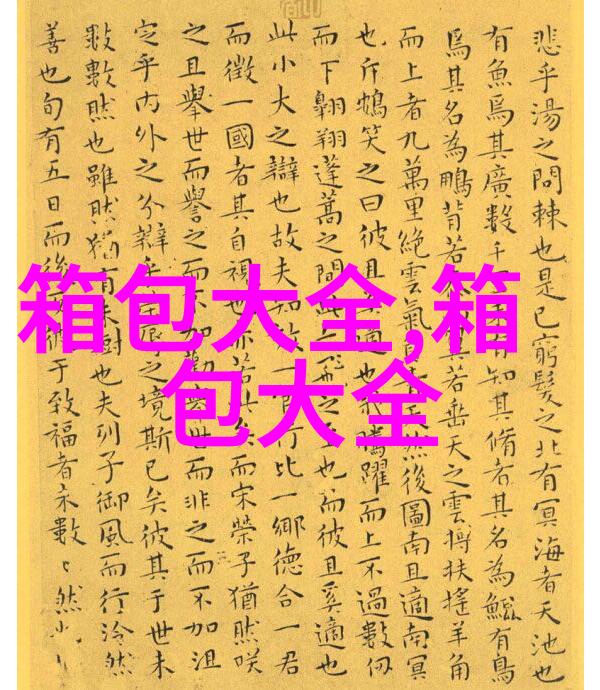 悲乎湯之問棘也是已窮髮之北有冥海者天池也
有魚焉其廣數千未有知其脩者其名為鯤有鳥
焉其名為鵬背若若垂天之雲摶扶搖羊角
而上者九萬里絕雲氣負青天然後圖南且適南冥
也斥鴳笑之曰彼且奚適也我騰躍而上不過數仞
而下翱翔蓬蒿之間此之至也而彼且奚適也
此小大之辯也故夫知一官行比一鄉德合一君
而徵一國者其自視也亦若此矣而宋榮子猶然咲
之且舉世而譽之而不加勸世而非之而不加沮
定乎內外之分辯乎辱之境斯已矣彼其于世未
數數然也雖然猶有未樹也夫列子御風而行泠然
善也旬有五日而後于致福者未數〻然也
箱包大全,箱
包大全